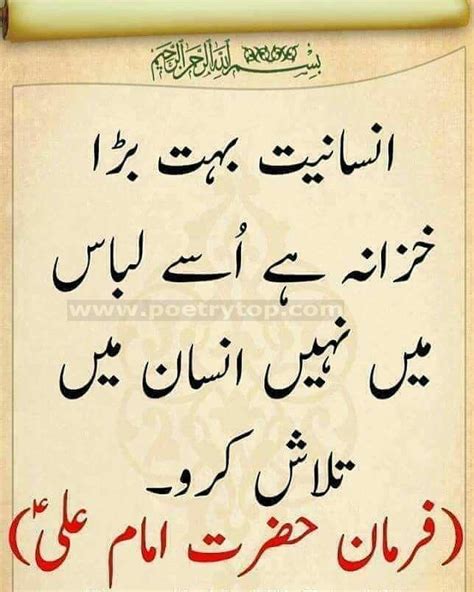 بسم اللہ الرحمن الرحیم
انسانیت بہت بڑا
خزانہ ہے اُسے لباس
www.poetrytop.com
میں نہیں انسان میں
تلاش کرو۔
(فرمان حضرت امام علیؑ)